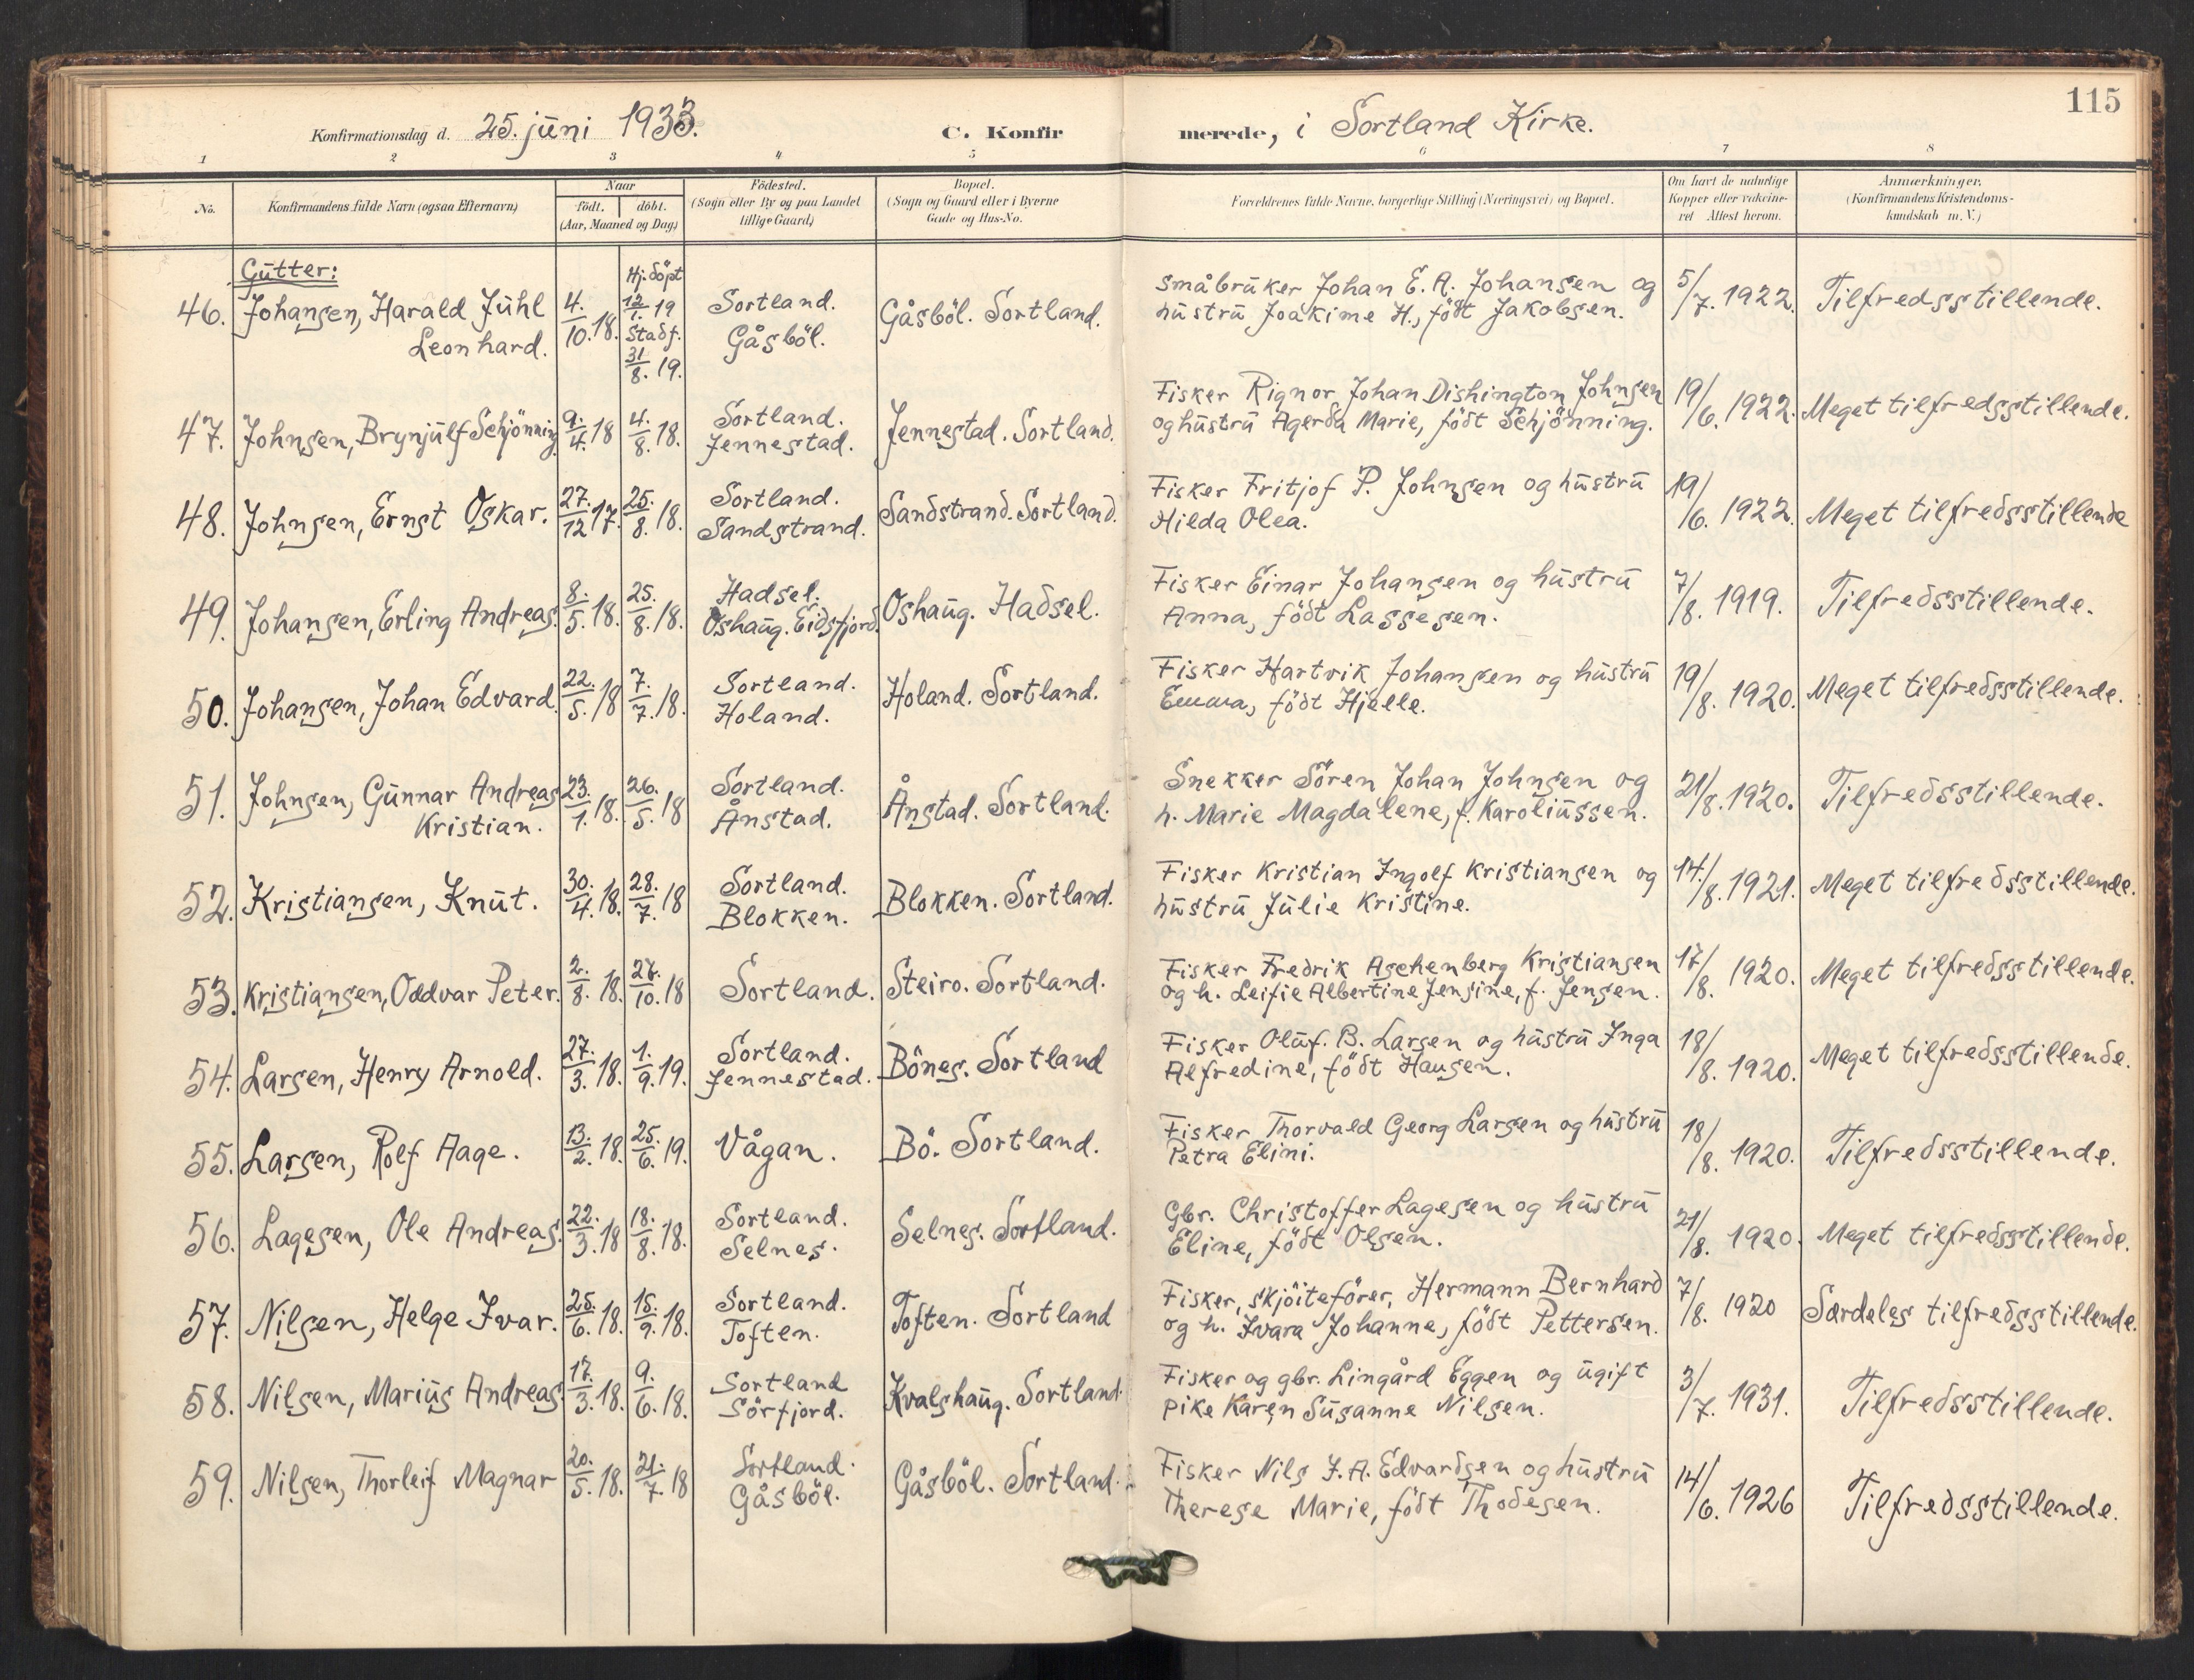 115
Konfirmationsdag d. 25. juni 1933. C. Konfirmerede, i Sortland Kirke.
1 2 3 4 5 6 7 8
No.
Konfirmandens fulde Navn (ogsaa Efternavn)
Naar
födt. döbt.
(Aar, Maaned og Dag)
Födested.
(Sogn eller By og paa Landet
tillige Gaard)
Bopæl.
(Sogn og Gaard eller i Byerne
Gade og Hus-No.
Forældrenes fulde Navne, borgerlige Stilling (Næringsvei) og Bopæl.
Om havt de naturlige
Kopper eller vakcine-
ret Attest herom.
Anmærkninger.
(Konfirmandens Kristendoms-
kundskab m. V.)
Gutter:
46. Johansen, Harald Juhl Leonhard. 4./10. 18. Hj. döpt 12/1. 19 Stadf. 31/8. 19. Sortland. Gåsböl. Gåsböl. Sortland. småbruker Johan E. A. Johansen og hustru Joakime H., födt Jakobsen. 5/7. 1922. Tilfredsstillende.
47. Johnsen, Brynjulf Schjönning 9./4. 18 4./8. 18. Sortland. Jennestad. Jennestad. Sortland. Fisker Rignor Johan Dishington Johnsen og hustru Agerda Marie, födt Schjönning. 19/6. 1922. Meget tilfredsstillende.
48. Johnsen, Ernst Oskar. 27./12 17. 25./8. 18. Sortland. Sandstrand. Sandstrand. Sortland. Fisker Fritjof P. Johnsen og hustru Hilda Olea. 19/6. 1922. Meget tilfredsstillende
49. Johansen, Erling Andreas. 8./5. 18. 25./8. 18. Hadsel. Oshaug. Eidsfjord. Oshaug. Hadsel. Fisker Einar Johansen og hustru Anna, födt Lassesen. 7/8. 1919. Tilfredsstillende.
50. Johansen, Johan Edvard. 22./5. 18 7./7. 18. Sortland. Holand. Holand. Sortland. Fisker Hartvik Johansen og hustru Emma, födt Hjelle. 19/8. 1920. Meget tilfredsstillende.
51. Johnsen, Gunnar Andreas Kristian. 23./1. 18. 26./5. 18 Sortland. Ånstad. Ånstad. Sortland. Snekker Sören Johan Johnsen og h. Marie Magdalene, f. Karoliussen. 21/8. 1920. Tilfredsstillende.
52. Kristiansen, Knut. 30./4. 18. 28./7. 18 Sortland. Blokken. Blokken. Sortland. Fisker Kristian Ingolf Kristiansen og hustru Julie Kristine. 14./8. 1921. Meget tilfredsstillende.
53. Kristiansen, Oddvar Peter. 2./8. 18. 27./10. 18 Sortland. Steiro. Sortland. Fisker Fredrik Aschenberg Kristiansen og h. Leifie Albertine Jensine, f. Jensen. 17/8. 1920. Meget tilfredsstillende.
54. Larsen, Henry Arnold. 27./3. 18. 1./9. 19. Sortland. Jennestad. Bönes. Sortland Fisker Oluf. B. Larsen og hustru Inga Alfredine, födt Hansen. 18/8. 1920. Meget tilfredsstillende.
55. Larsen, Rolf Aage. 13./2. 18. 25./6. 19. Vågan. Bö. Sortland. Fisker Thorvald Georg Larsen og hustru Petra Elini. 18/8. 1920. Tilfredsstillende.
56. Lagesen, Ole Andreas. 22./3. 18 18./8. 18. Sortland. Selnes. Selnes. Sortland. Gbr. Christoffer Lagesen og hustru Eline, födt Olsen. 21/8. 1920. Meget tilfredsstillende.
57. Nilsen, Helge Ivar. 25./6. 18. 15./9. 18. Sortland. Toften. Toften. Sortland Fisker, skjöiteförer, Hermann Bernhard og h. Ivara Johanne, födt Pettersen. 7/8. 1920 Særdeles tilfredsstillende.
58. Nilsen, Marius Andreas. 17./3. 18. 9./6. 18. Sortland Sörfjord. Kvalshaug. Sortland. Fisker og gbr. Lingård Eggen og ugift pike Karen Susanne Nilsen. 3/7. 1931. Tilfredsstillende.
59. Nilsen, Thorleif Magnar 20./5. 18. 21./7. 18 Sortland. Gåsböl. Gåsböl. Sortland. Fisker Nils J. A. Edvardsen og hustru Therese Marie, födt Thodesen. 14/6. 1926 Tilfredsstillende.